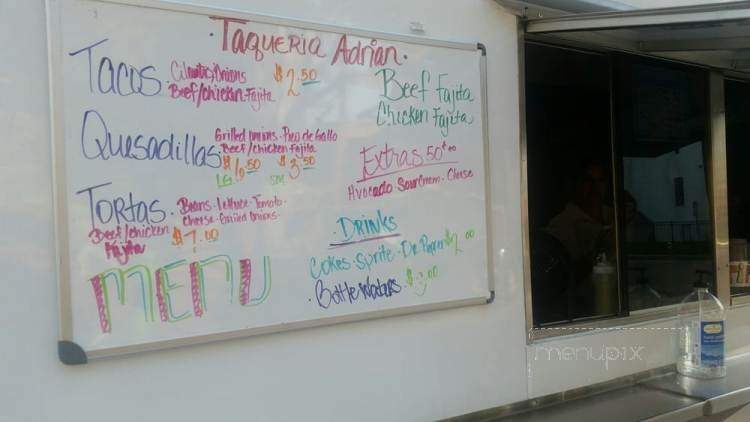 Taqueria Adrian
Tacos Cilantro/Onions $2.50
Beef/chicken Fajita
Quesadillas Grilled onions · Pico de Gallo
Beef/chicken Fajita
LG $6.50 SM $3.50
Tortas Beans · Lettuce · Tomato ·
cheese · Grilled onions ·
Beef/chicken Fajita $7.00
MENU
Beef Fajita
Chicken Fajita
Extras 50¢
Avocado · Sour Cream · Cheese
· Drinks
Cokes · Sprite · Dr. Pepper $2.00
· Bottle Waters $
menupix